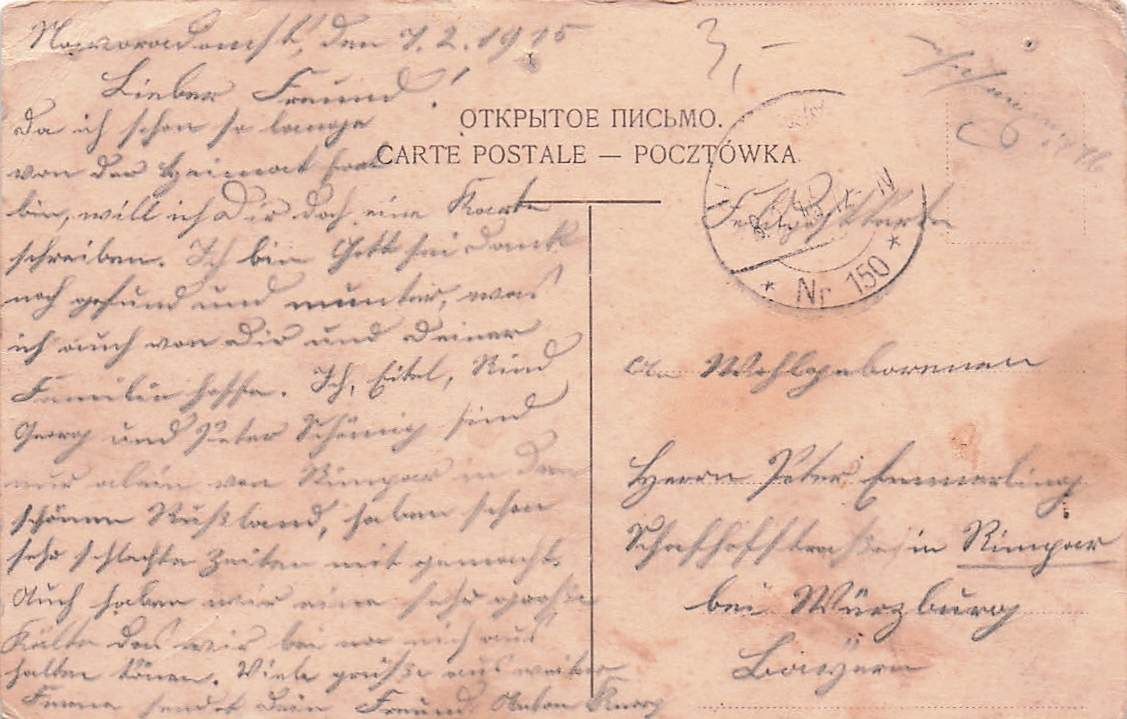 Noworadomsk, den 7.2.1915
Lieber Freund!
Da ich schon so lange
von der Heimat fort
bin, will ich Dir doch eine Karte
schreiben. Ich bin Gott sei dank
noch gesund und munter, was
ich auch von Dir und Deiner
Familie hoffe. Ich, Eitel, Rind
Georg und Peter Schömig sind
nur alein von Rimpar in dem
schönen Rußland, haben schon
sehr schlechte Zeiten mit gemacht.
Auch haben wir eine sehr große
Kälte das wir bei na nich aus
halten könen. Viele grüße aus weiter
Ferne sendet dein Freund Anton
3,-
ОТКРЫТОЕ ПИСЬМО.
CARTE POSTALE — POCZTÓWKA
Feldpostkarte
* Nr 150 *
An Wohlgeborenen
Herrn Peter Emmerling
Schafhofstraße in Rimpar
bei Würzburg
Bayern